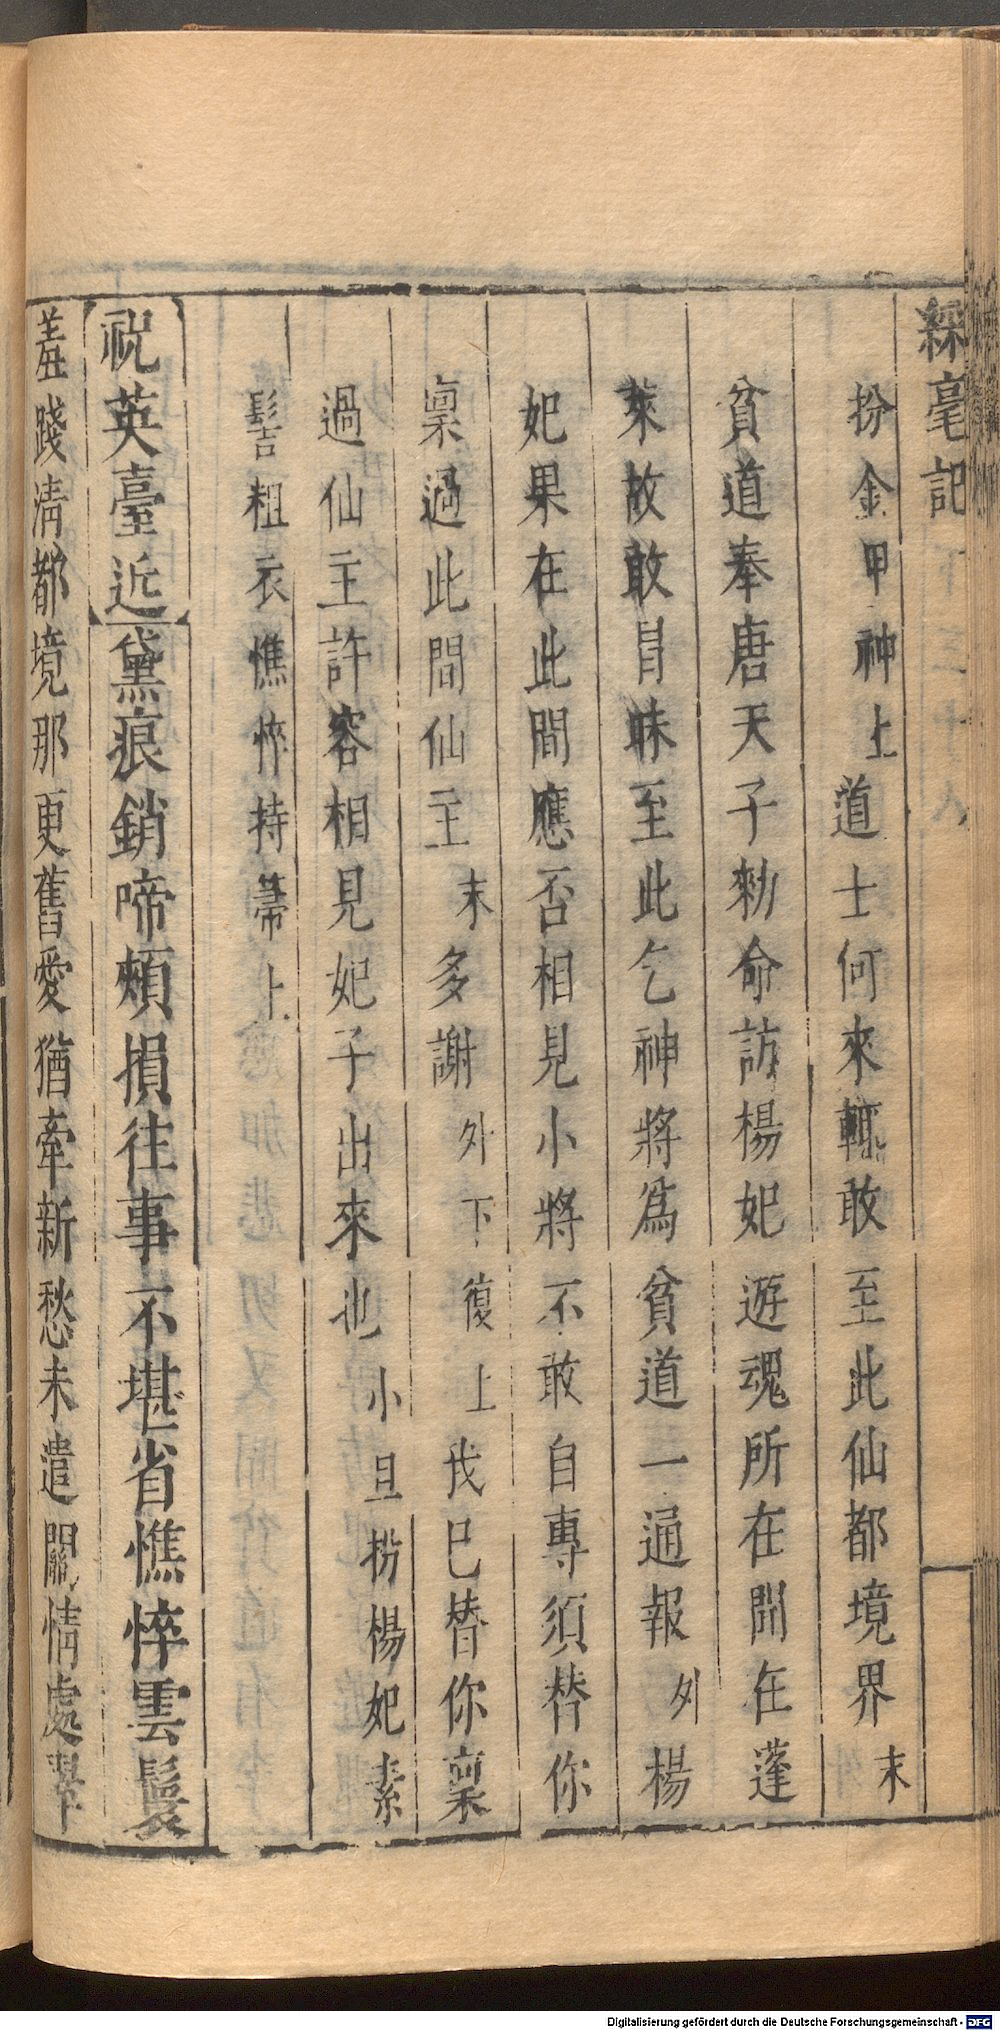 綵毫記
扮金甲神上道士何來輒敢至此仙都境界末
貧道奉唐天子勑命訪楊妃遊魂所在聞在蓬
萊故敢冒昧至此乞神將爲貧道一通報外楊
妃果在此間應否相見小將不敢自專須替你
稟過此間仙主末多謝外下復上我已替你稟
過仙主許容相見妃子出來也小旦扮楊妃素
髻粗衣憔悴持箒上
祝英臺近黛痕銷啼頰損往事不堪省憔悴雲鬟
羞踐清都境那更舊愛猶牽新愁未遣關情處
Digitalisierung gefördert durch die Deutsche Forschungsgemeinschaft - DFG